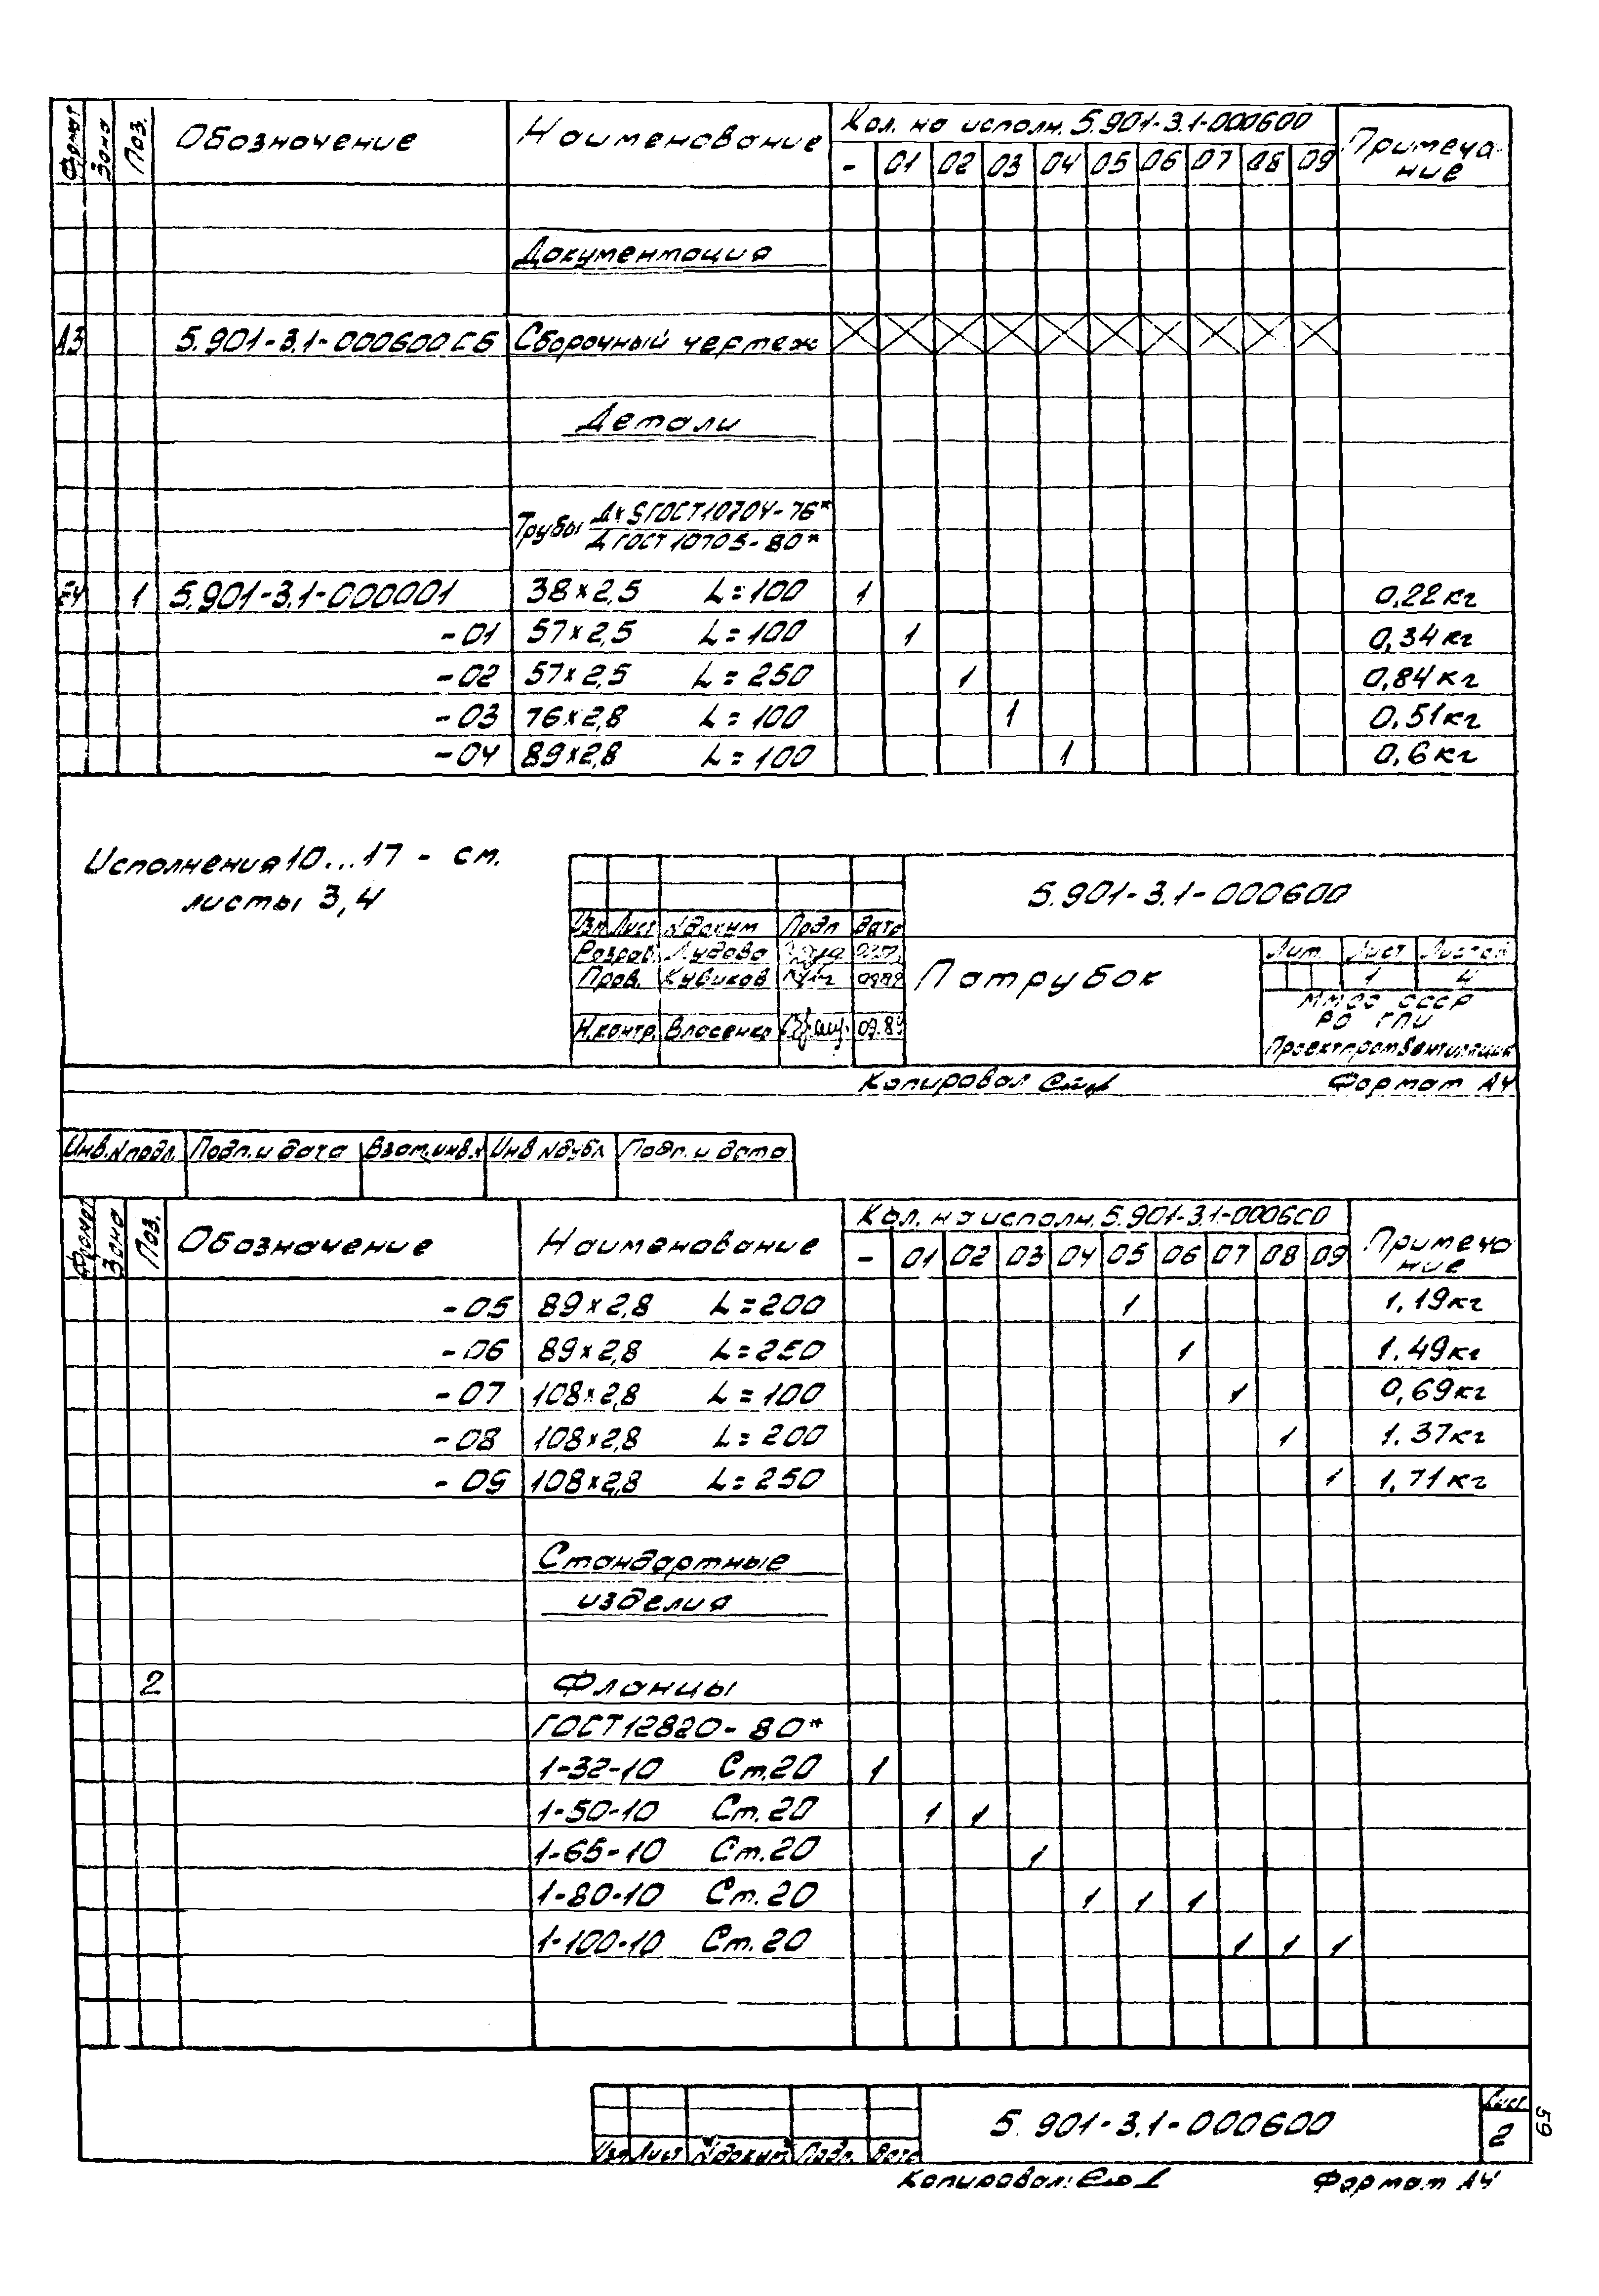 Формат Зона Поз. Обозначение Наименование Кол. на исполн. 5.901-3.1-000600 Примеча-
- 01 02 03 04 05 06 07 08 09 ние
Документация
А3 5.901-3.1-000600СБ Сборочный чертеж
Детали
Трубы Д×S ГОСТ 10704-76*
Д ГОСТ 10705-80*
Б4 1 5.901-3.1-000001 38×2,5 L=100 1 0,22кг
-01 57×2,5 L=100 1 0,34кг
-02 57×2,5 L=250 1 0,84кг
-03 76×2,8 L=100 1 0,51кг
-04 89×2,8 L=100 1 0,6кг
Исполнения 10...17 - см.
листы 3,4
5.901-3.1-000600
Изм Лист N докум Подп Дата
Разраб. Лудова
Пров. Кувиков
Н.контр. Власенко 07.89
Патрубок
Лит. Лист Листов
1 4
ММСС СССР
РО ГПИ
Проектпромвентиляция
Копировал Формат А4
Инв. N подл. Подп. и дата Взам. инв. N Инв N дубл. Подп. и дата
Формат Зона Поз. Обозначение Наименование Кол. на исполн. 5.901-3.1-000600 Примеча
- 01 02 03 04 05 06 07 08 09 ние
-05 89×2,8 L=200 1 1,19кг
-06 89×2,8 L=250 1 1.49кг
-07 108×2,8 L=100 1 0,69кг
-08 108×2,8 L=200 1 1.37кг
-09 108×2,8 L=250 1 1,71кг
Стандартные
изделия
2 Фланцы
ГОСТ 12820-80*
1-32-10 Ст.20 1
1-50-10 Ст.20 1 1
1-65-10 Ст.20 1
1-80-10 Ст.20 1 1 1
1-100-10 Ст.20 1 1 1
5.901-3.1-000600
Лист
2
Изм Лист N докум Подп. Дата
Копировал: Формат А4
59